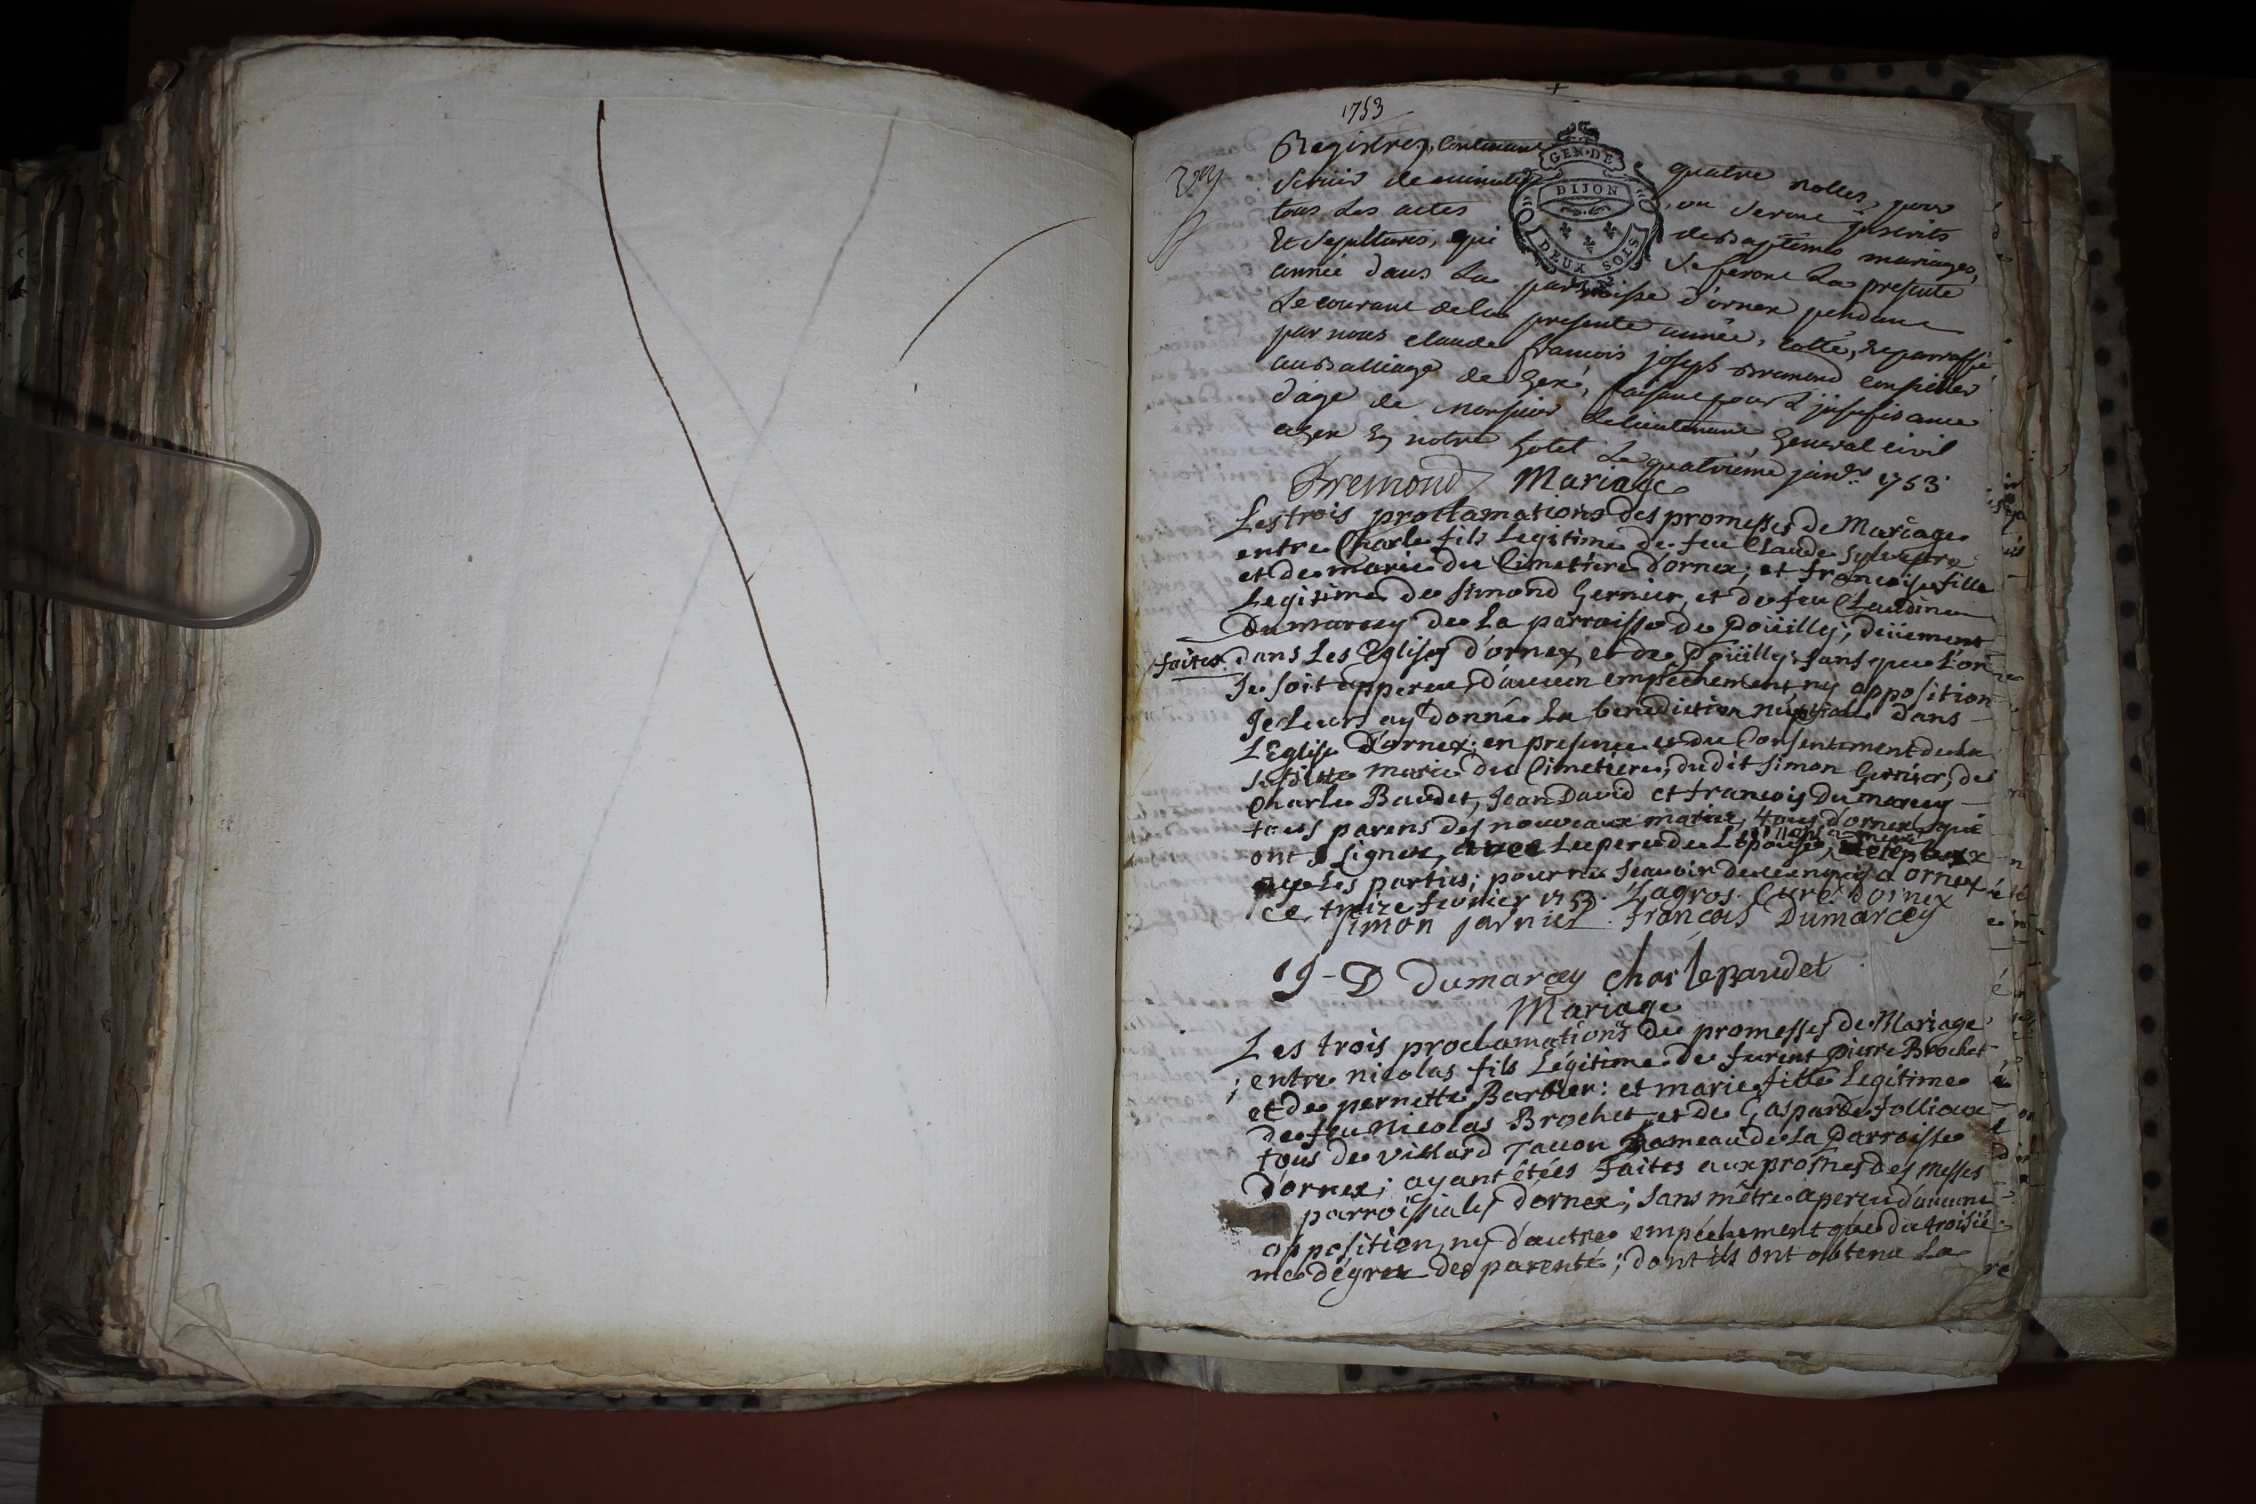 1753
Registres, Contenant quatre rolles, pour
Servir de minutte, ou seront inscrits
tous Les actes de Baptêmes mariages,
Et sepultures, qui se feront La presente
année dans La parroisse d'ornex pendant
Le courant de la presente année, Cotté, Et parraffé
par nous claude francois joseph Bremond Conseiller
au Balliage de Gex, faisant pour L'jnsufisance
d'age de Monsieur Le lieutenant General civil
a gex En notre hotel Le quatrieme janv.er 1753
GEN·DE
DIJON
DEUX SOLS
Bremond
Mariage
Les trois proclamations des promesses de Mariage
entre Charle fils Legitime de feu Claude
et de marie du Cimetière d'ornex; et francoise fille
Legitime de Simond Gernier, et de feu Claudine
Dumarcey de La parroisse de Poüilly, deüement
faites dans Les Eglises d'ornex, et de Poüilly sans que L'on
se soit apperçu d'aucun empêchement, ny opposition
Je Leurs ay donné La benediction nuptiale dans
L'Eglise d'ornex; en presence et du Consentement de la
susditte marie du Cimetiere, dudit Simon Gernier, de
Charle Baudet, Jean David et francois Dumarcey
tous parens des nouveaux mariés, tous d'ornex qui
ont signer, avec Le pere de L'épouse,
les parties; pour ne sçavoir de ce enquis a ornex
ce treize fevrier 1753. Lagros Curé d'ornex
simon jarnier francois Dumarcey
J-D Dumarcey charle Baudet
Mariage
Les trois proclamations de promesses de Mariage
entre nicolas fils Légitime de furent pierre Brochet
et de pernette Barbier: et marie fille Legitime
de feu Nicolas Brochet et de Gasparde follioux
tous de villard Tacon hameau de La Parroisse
d'ornex; ayant étées faites aux prosnes des Messes
parroissiales d'ornex; sans m'être aperçu d'aucune
opposition, ny d'autre empéchement que du troisié-
me dégrez de parenté; dont ils ont obtenu La